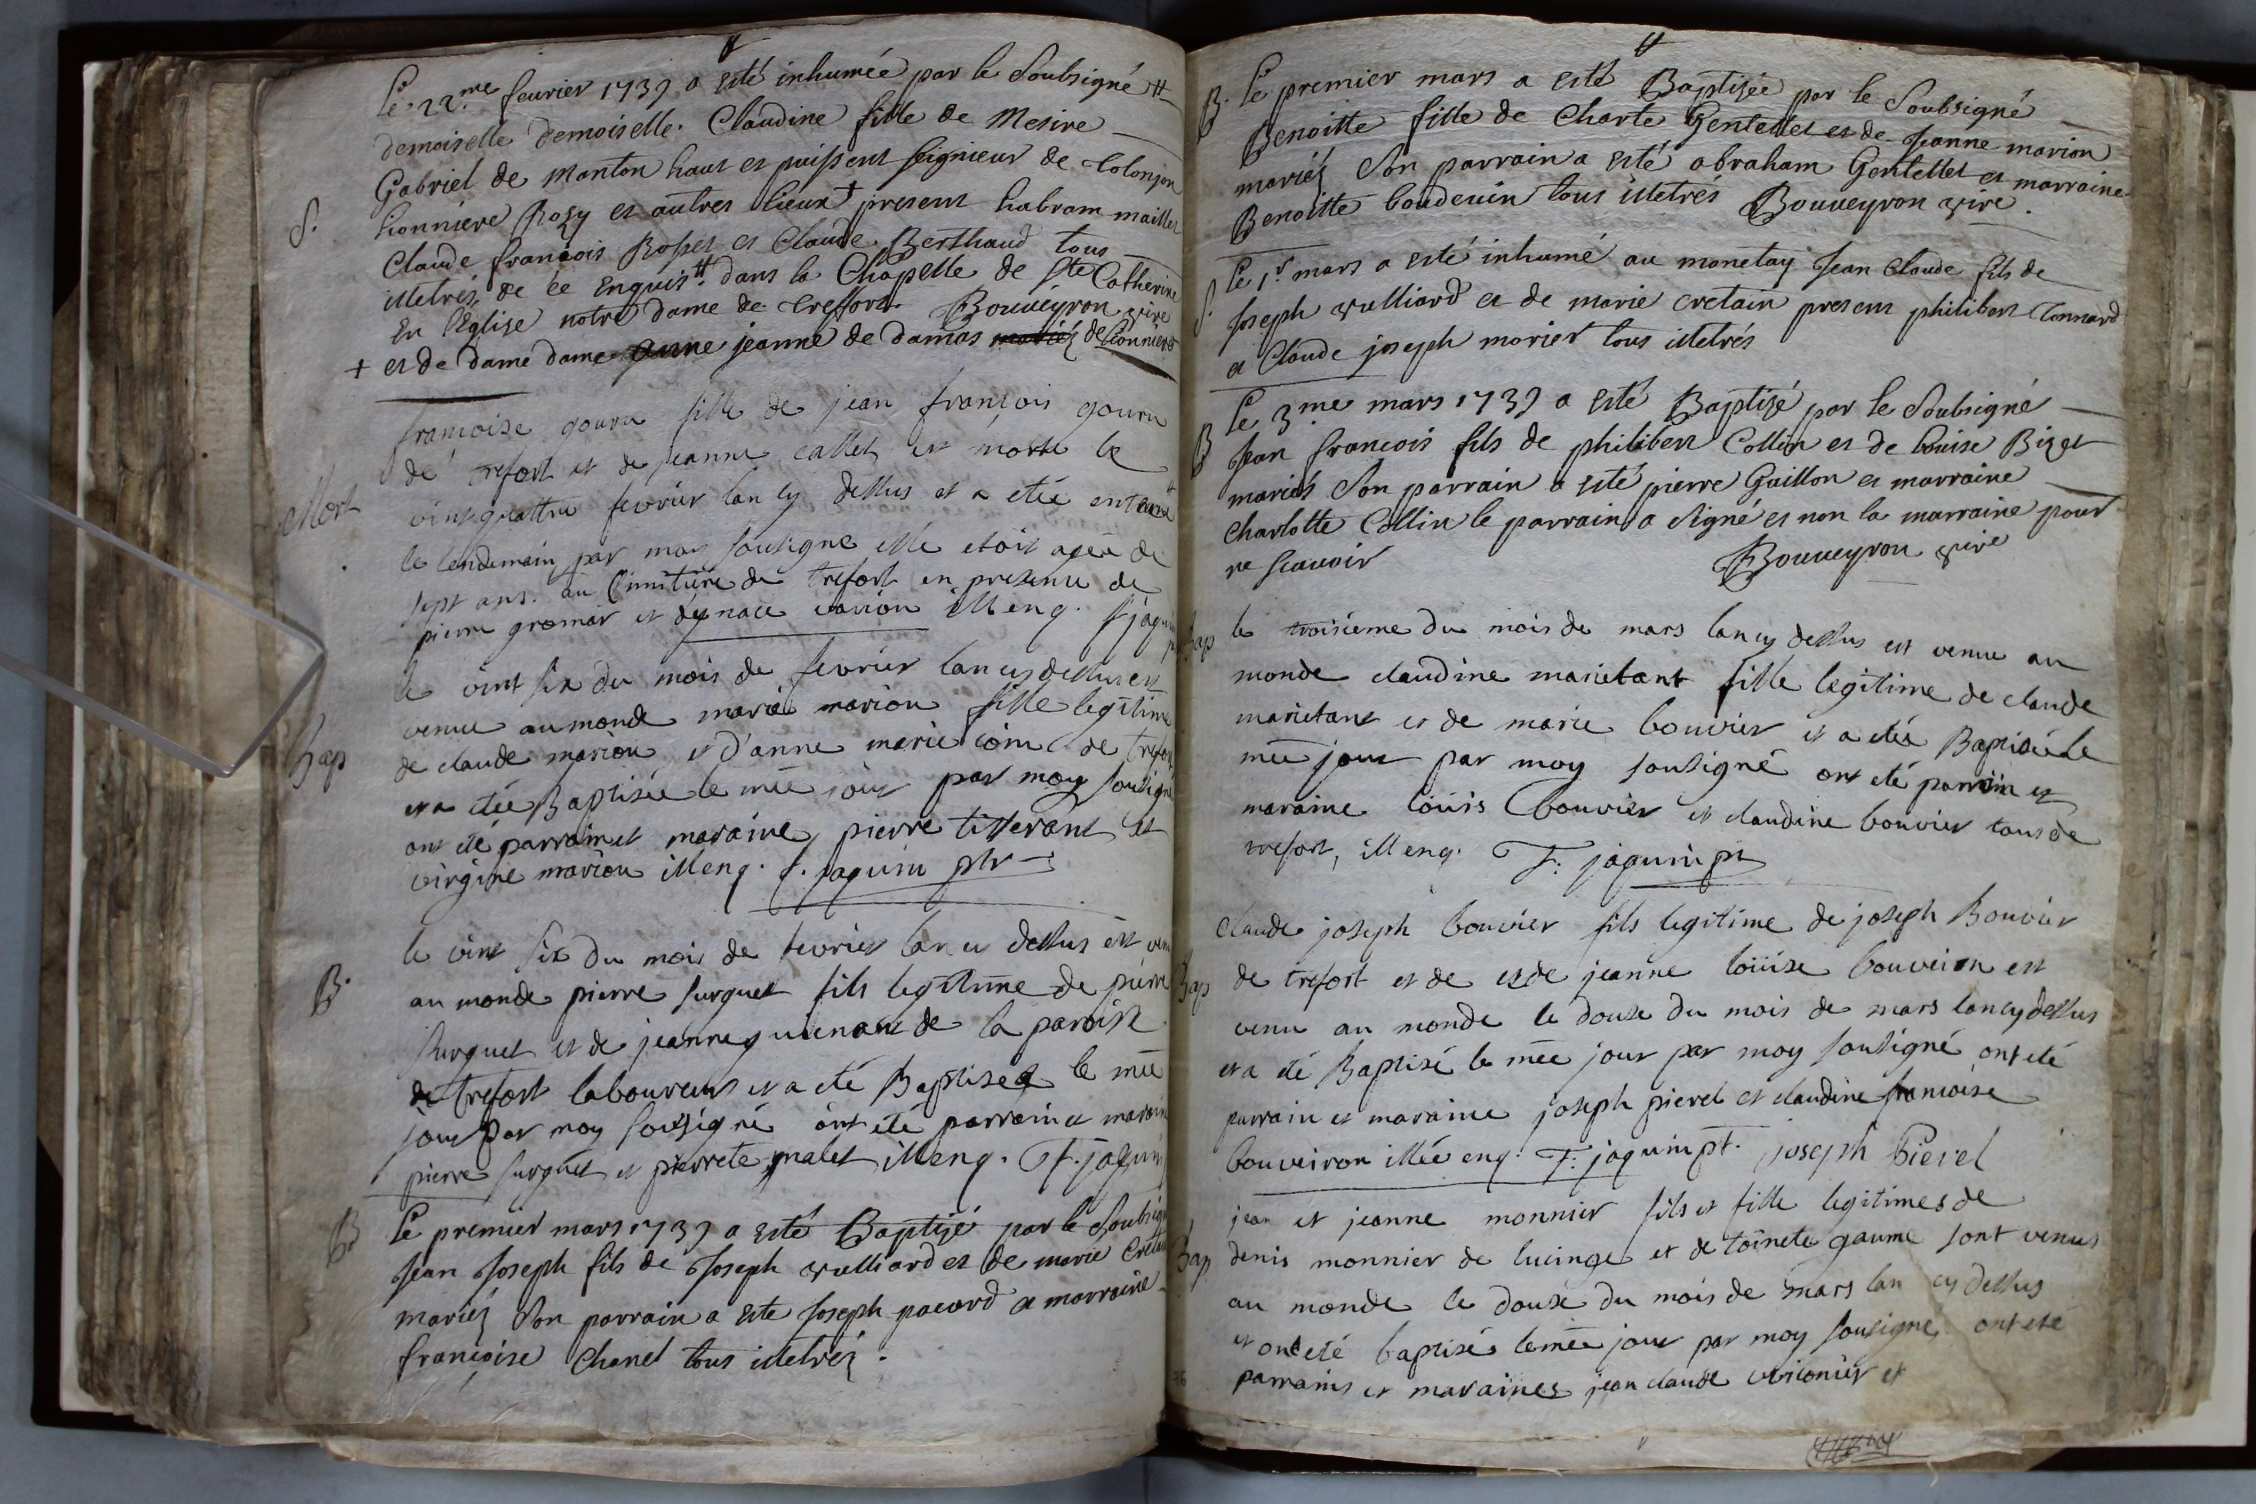 Le 22.me feurier 1739 a esté inhumée par le Soubsigné
demoiselle demoiselle. Claudine fille de Mesire
Gabriel de Manton haut et puissent seignieur de Colonjon
S.
Lionniere Rosy et autres Lieux + present habram maillet
Claude françois Rosset et Claude Berthaud tous
illetrés de ce Enquis dans la Chapelle de Ste Catherine
En l'Eglise notre dame de treffort. Bouueyron vire
+ et de dame dame anne jeanne de damas mariés de Lionniere
francoise gouru fille de jean françois gouru
de trefort et de jeanne callet est morte le
Mort
vint quattre fevrier lan cy dessus et a etée
le lendemain par moy sousigné elle etoit agée de
sept ans. au Cimitiere de trefort en presence de
pierre gromier et dignace marion ill enq. f jaquin
le vint six du mois de fevrier lan cy dessus est
venue au monde marie marion fille legitime
bap
de claude marion et d'anne marie coin de trefort
et a etée Baptisée le mẽe jour par moy sousigné
ont eté parrain et maraine pierre tisserant et
virgine marion ill enq. f. jaquin ptr
le vint six du mois de fevrier lan cy dessus est venu
B.
au monde pierre surguet fils legitime de pierre
surguet et de jeanne de la paroisse
de trefort laboureur et a eté Baptisé le mẽe
jour par moy sousigné ont eté parrain et maraine
pierre surguet et pierrete malet ill enq. F. jaquin
B
Le premier mars 1739 a esté Baptisé par le Soubsigné
Jean Joseph fils de Joseph vulliard et de marie Cretain
mariés Son parrain a este Joseph pacard et marraine
françoise Chanel tous illetrés.
B. Le premier mars a esté Baptisée par le Soubsigné
Benoitte fille de Charle Gentellet et de Jeanne marion
mariés Son parrain a esté abraham Gentellet et marraine
Benoitte baudeuin tous illetrés Bouueyron vire.
S.
Le 1.r mars a esté inhumé au monetay Jean Claude fils de
Joseph vulliard et de marie cretain present philibert Connard
et Claude joseph morier tous illetrés
B
Le 3.me mars 1739 a esté Baptisé par le Soubsigné
Jean francois fils de philibert Collin et de Louise Bizet
mariés Son parrain a esté pierre Guillon et marraine
Charlotte Collin le parrain a signé et non la marraine pour
ne scauoir Bouueyron vire
bap
le troisieme du mois de mars lan cy dessus est venue au
monde claudine marietant fille legitime de claude
marietant et de marie bouvier et a etée Baptisée le
mẽe jour par moy sousigné ont eté parrain et
maraine loüis bouvier et claudine bouvier tous de
trefort, ill enq. F: jaquin pt
Claude joseph bouvier fils legitime de joseph Bouvier
bap
de trefort et de et de jeanne loüise bouveiron est
venu au monde le douse du mois de mars lan cy dessus
et a eté Baptisé le mẽe jour par moy sousigné ont eté
parrain et maraine joseph pierel et claudine francoise
bouveiron illée enq. F: jaquin pt. joseph Pierel
jean et jeanne monnier fils et fille legitimes de
bap
denis monnier de lucinge et de toinete gaume sont venus
au monde le douse du mois de mars lan cy dessus
et ont eté baptisés le mẽe jour par moy sousigné ont eté
parrains et maraines jean claude et